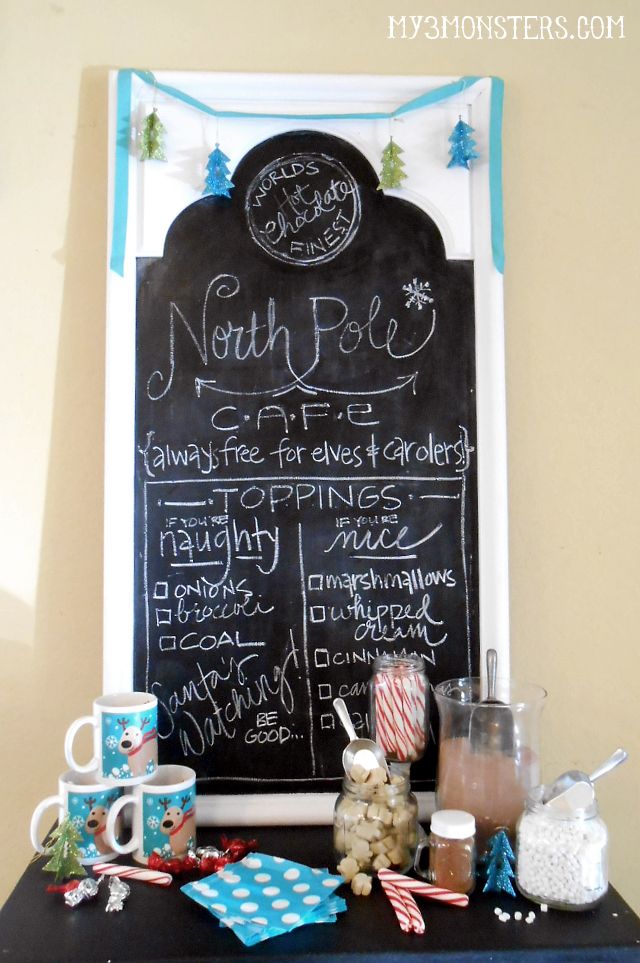 MY3MONSTERS.COM
WORLDS
Hot
Chocolate
FINEST
North Pole
C·A·F·E
{always free for elves & carolers}
TOPPINGS
IF YOU'RE
naughty
ONIONS
broccoli
COAL
Santa's
Watching!
BE
GOOD...
IF YOU'RE
nice
marshmallows
whipped
cream
CINNAMON